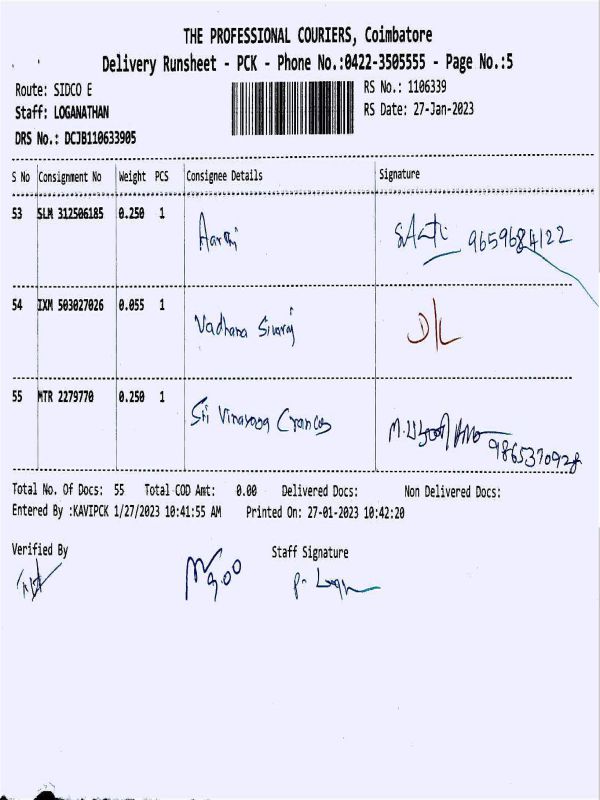 THE PROFESSIONAL COURIERS, Coimbatore
Delivery Runsheet - PCK - Phone No.:0422-3505555 - Page No.:5
Route: SIDCO E
RS No.: 1106339
Staff: LOGANATHAN
RS Date: 27-Jan-2023
DRS No.: DCJB110633905
S No Consignment No Weight PCS Consignee Details Signature
53 SLM 312506185 0.250 1 9659684122
54 IXM 503027026 0.055 1 Vadhana Sivaraj D/L
55 MTR 2279770 0.250 1 Sri Vinayaga 9865370928
Total No. Of Docs: 55 Total COD Amt: 0.00 Delivered Docs: Non Delivered Docs:
Entered By :KAVIPCK 1/27/2023 10:41:55 AM Printed On: 27-01-2023 10:42:20
Verified By Staff Signature